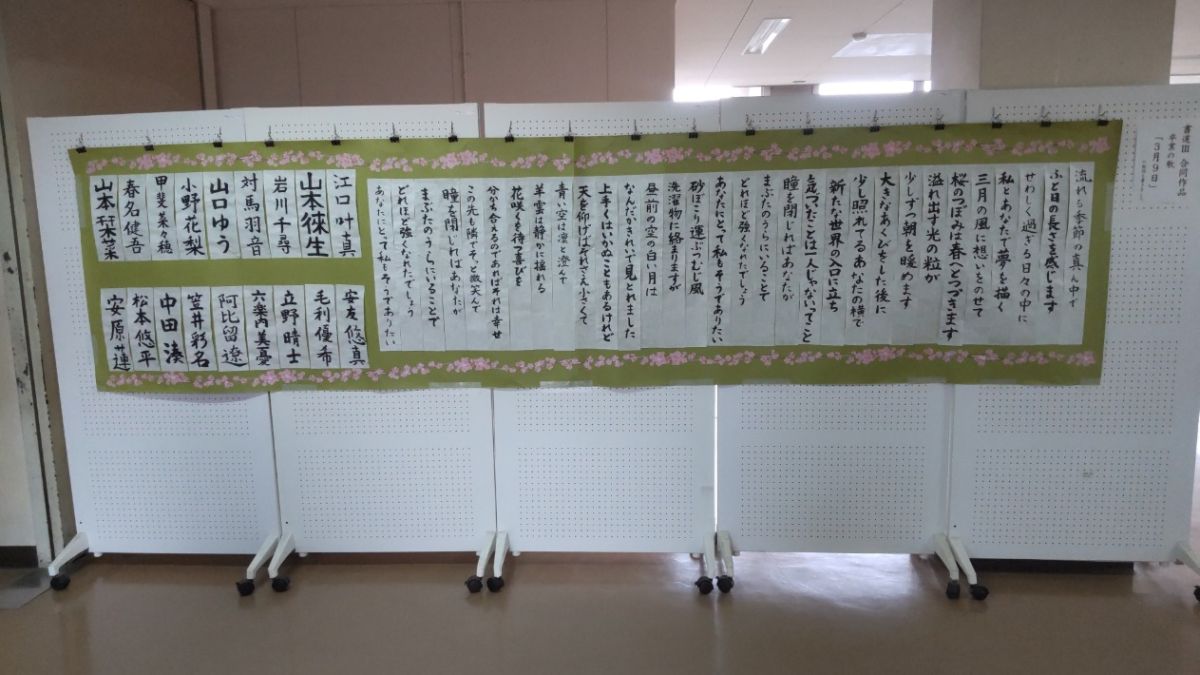 書道Ⅲ 合同作品
卒業の歌
「3月9日」
流れる季節の真ん中で
ふと日の長さを感じます
せわしく過ぎる日々の中に
私とあなたで夢を描く
三月の風に想いをのせて
桜のつぼみは春へとつづきます
溢れ出す光の粒が
少しずつ朝を暖めます
大きなあくびをした後に
少し照れてるあなたの横で
新たな世界の入口に立ち
気づいたことは一人じゃないってこと
瞳を閉じればあなたが
まぶたのうらにいることで
どれほど強くなれたでしょう
あなたにとって私もそうでありたい
砂ぼこり運ぶつむじ風
洗濯物に絡まりますが
昼前の空の白い月は
なんだかきれいで見とれました
上手くはいかぬこともあるけれど
天を仰げばそれさえ小さくて
青い空は凛と澄んで
羊雲は静かに揺れる
花咲くを待つ喜びを
分かち合えるのであればそれは幸せ
この先も隣でそっと微笑んで
瞳を閉じればあなたが
まぶたのうらにいることで
どれほど強くなれたでしょう
あなたにとって私もそうでありたい
江口叶真
山本徠生
岩川千尋
対馬羽音
山口ゆう
小野花梨
甲斐菜々穂
春名健吾
山本栞菜
安友悠真
毛利優希
立野晴士
六樂内美憂
阿比留遼
笠井彩名
中田湊
松本悠平
安原蓮